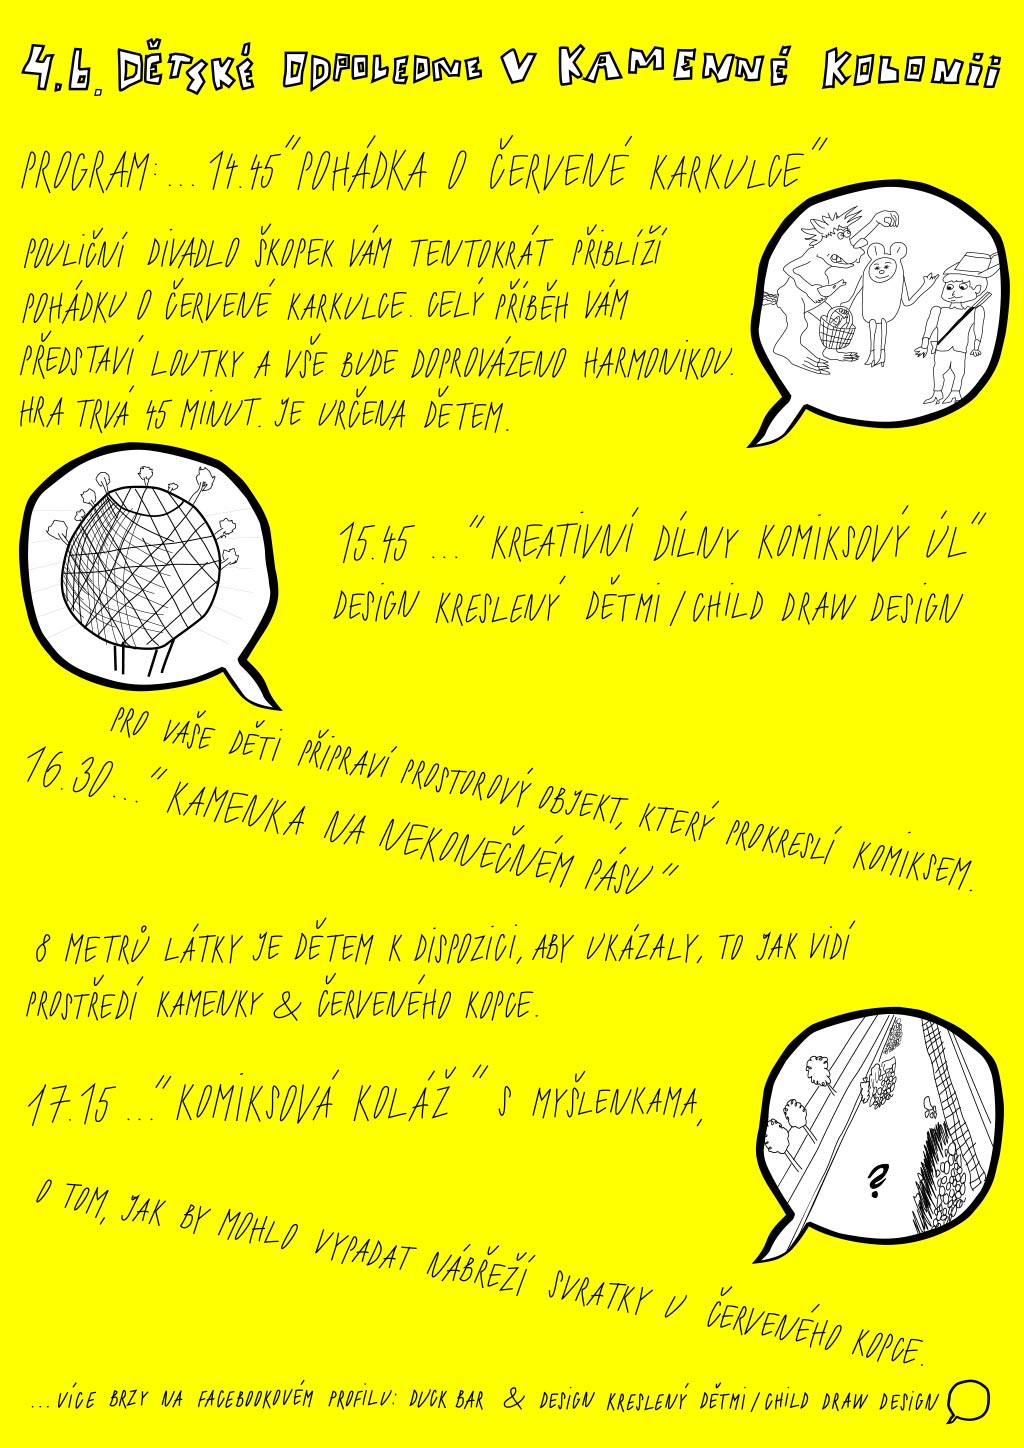 4.6. DĚTSKÉ ODPOLEDNE V KAMENNÉ KOLONII
PROGRAM:... 14.45 "POHÁDKA O ČERVENÉ KARKULCE"
POULIČNÍ DIVADLO ŠKOPEK VÁM TENTOKRÁT PŘIBLÍŽÍ
POHÁDKU O ČERVENÉ KARKULCE. CELÝ PŘÍBĚH VÁM
PŘEDSTAVÍ LOUTKY A VŠE BUDE DOPROVÁZENO HARMONIKOU.
HRA TRVÁ 45 MINUT. JE URČENA DĚTEM.
15.45 ... "KREATIVNÍ DÍLNY KOMIKSOVÝ ÚL"
DESIGN KRESLENÝ DĚTMI / CHILD DRAW DESIGN
PRO VAŠE DĚTI PŘIPRAVÍ PROSTOROVÝ OBJEKT, KTERÝ PROKRESLÍ KOMIKSEM.
16.30... "KAMENKA NA NEKONEČNÉM PÁSU"
8 METRŮ LÁTKY JE DĚTEM K DISPOZICI, ABY UKÁZALY, TO JAK VIDÍ
PROSTŘEDÍ KAMENKY & ČERVENÉHO KOPCE.
17.15 ... "KOMIKSOVÁ KOLÁŽ" S MYŠLENKAMA,
O TOM, JAK BY MOHLO VYPADAT NÁBŘEŽÍ SVRATKY U ČERVENÉHO KOPCE.
?
...VÍCE BRZY NA FACEBOOKOVÉM PROFILU: DUCK BAR & DESIGN KRESLENÝ DĚTMI / CHILD DRAW DESIGN